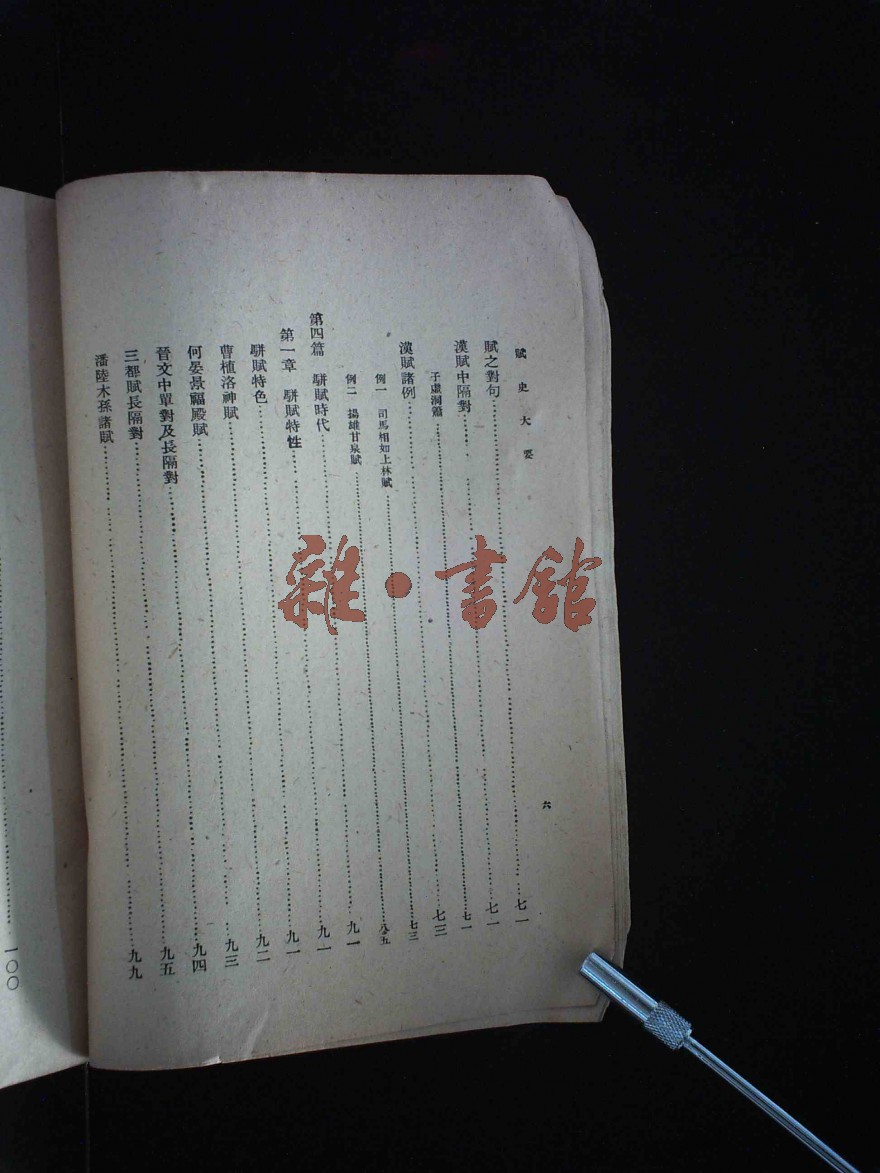 賦史大要
六
賦之對句……七一
漢賦中隔對……七一
子虛洞簫……七一
漢賦諸例……七三
例一 司馬相如上林賦……七三
例二 揚雄甘泉賦……八五
第四篇 駢賦時代……九一
第一章 駢賦特性……九一
駢賦特色……九一
曹植洛神賦……九二
何晏景福殿賦……九三
晉文中單對及長隔對……九四
三都賦長隔對……九五
潘陸木孫諸賦……九九
……一〇〇
雜·書館